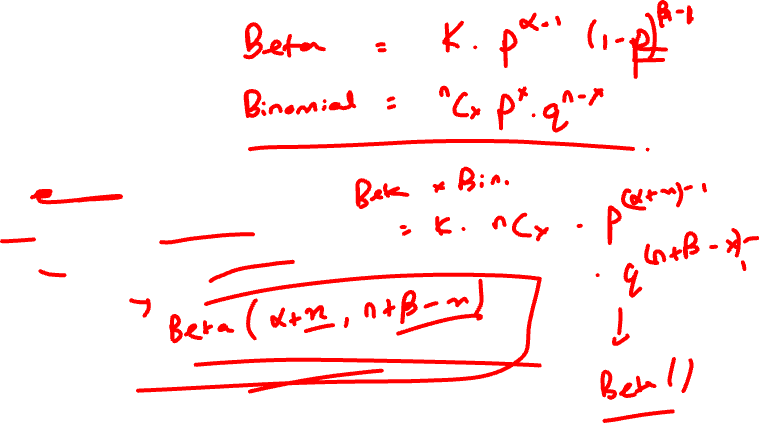 Beta = K. p^{α-1} (1-p)^{β-1}
Binomial = ⁿCₓ pˣ.q^{n-x}
Beta * Bin.
= K. nCₓ . p^{(α+x)-1}
. q^{(n+β-x)-1}
→ Beta(α+x, n+β-x)
↓
Beta()